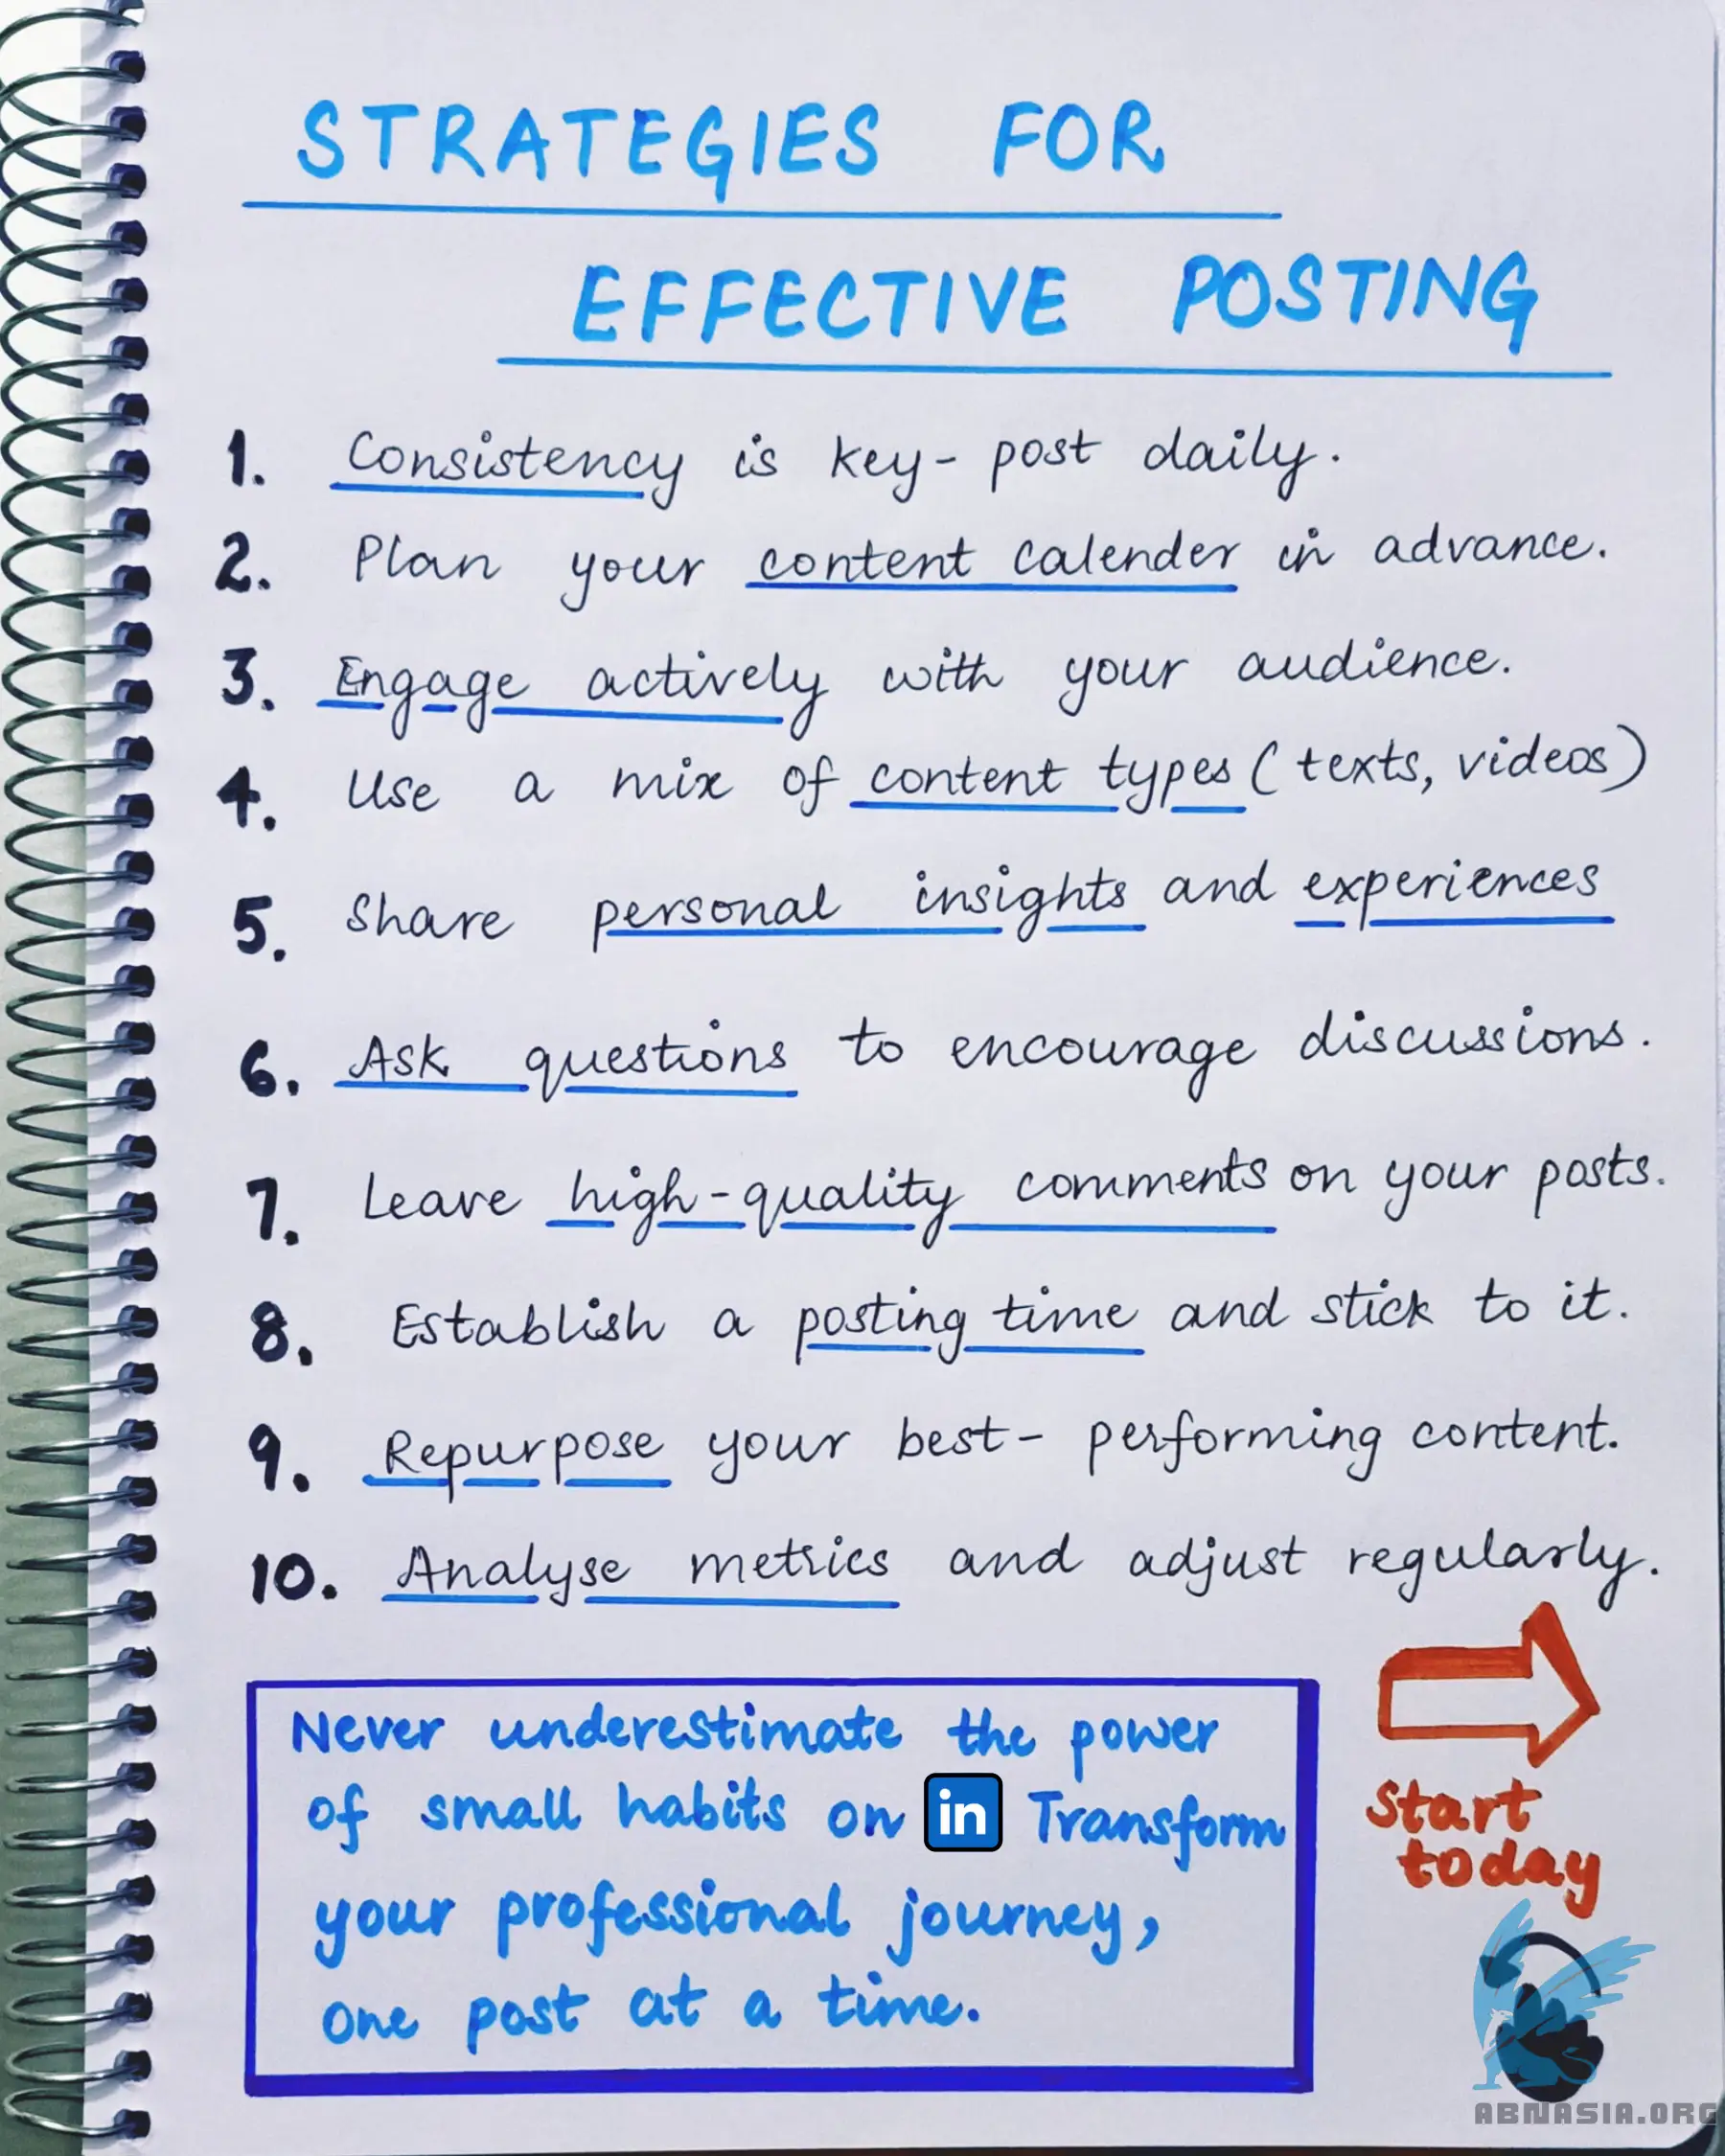 STRATEGIES FOR
EFFECTIVE POSTING
1. Consistency is key- post daily.
2. Plan your content calender in advance.
3. Engage actively with your audience.
4. Use a mix of content types (texts, videos)
5. Share personal insights and experiences
6. Ask questions to encourage discussions.
7. Leave high-quality comments on your posts.
8. Establish a posting time and stick to it.
9. Repurpose your best- performing content.
10. Analyse metrics and adjust regularly.
Never underestimate the power
of small habits on in Transform
your professional journey,
one post at a time.
Start
today
ABNASIA.ORG